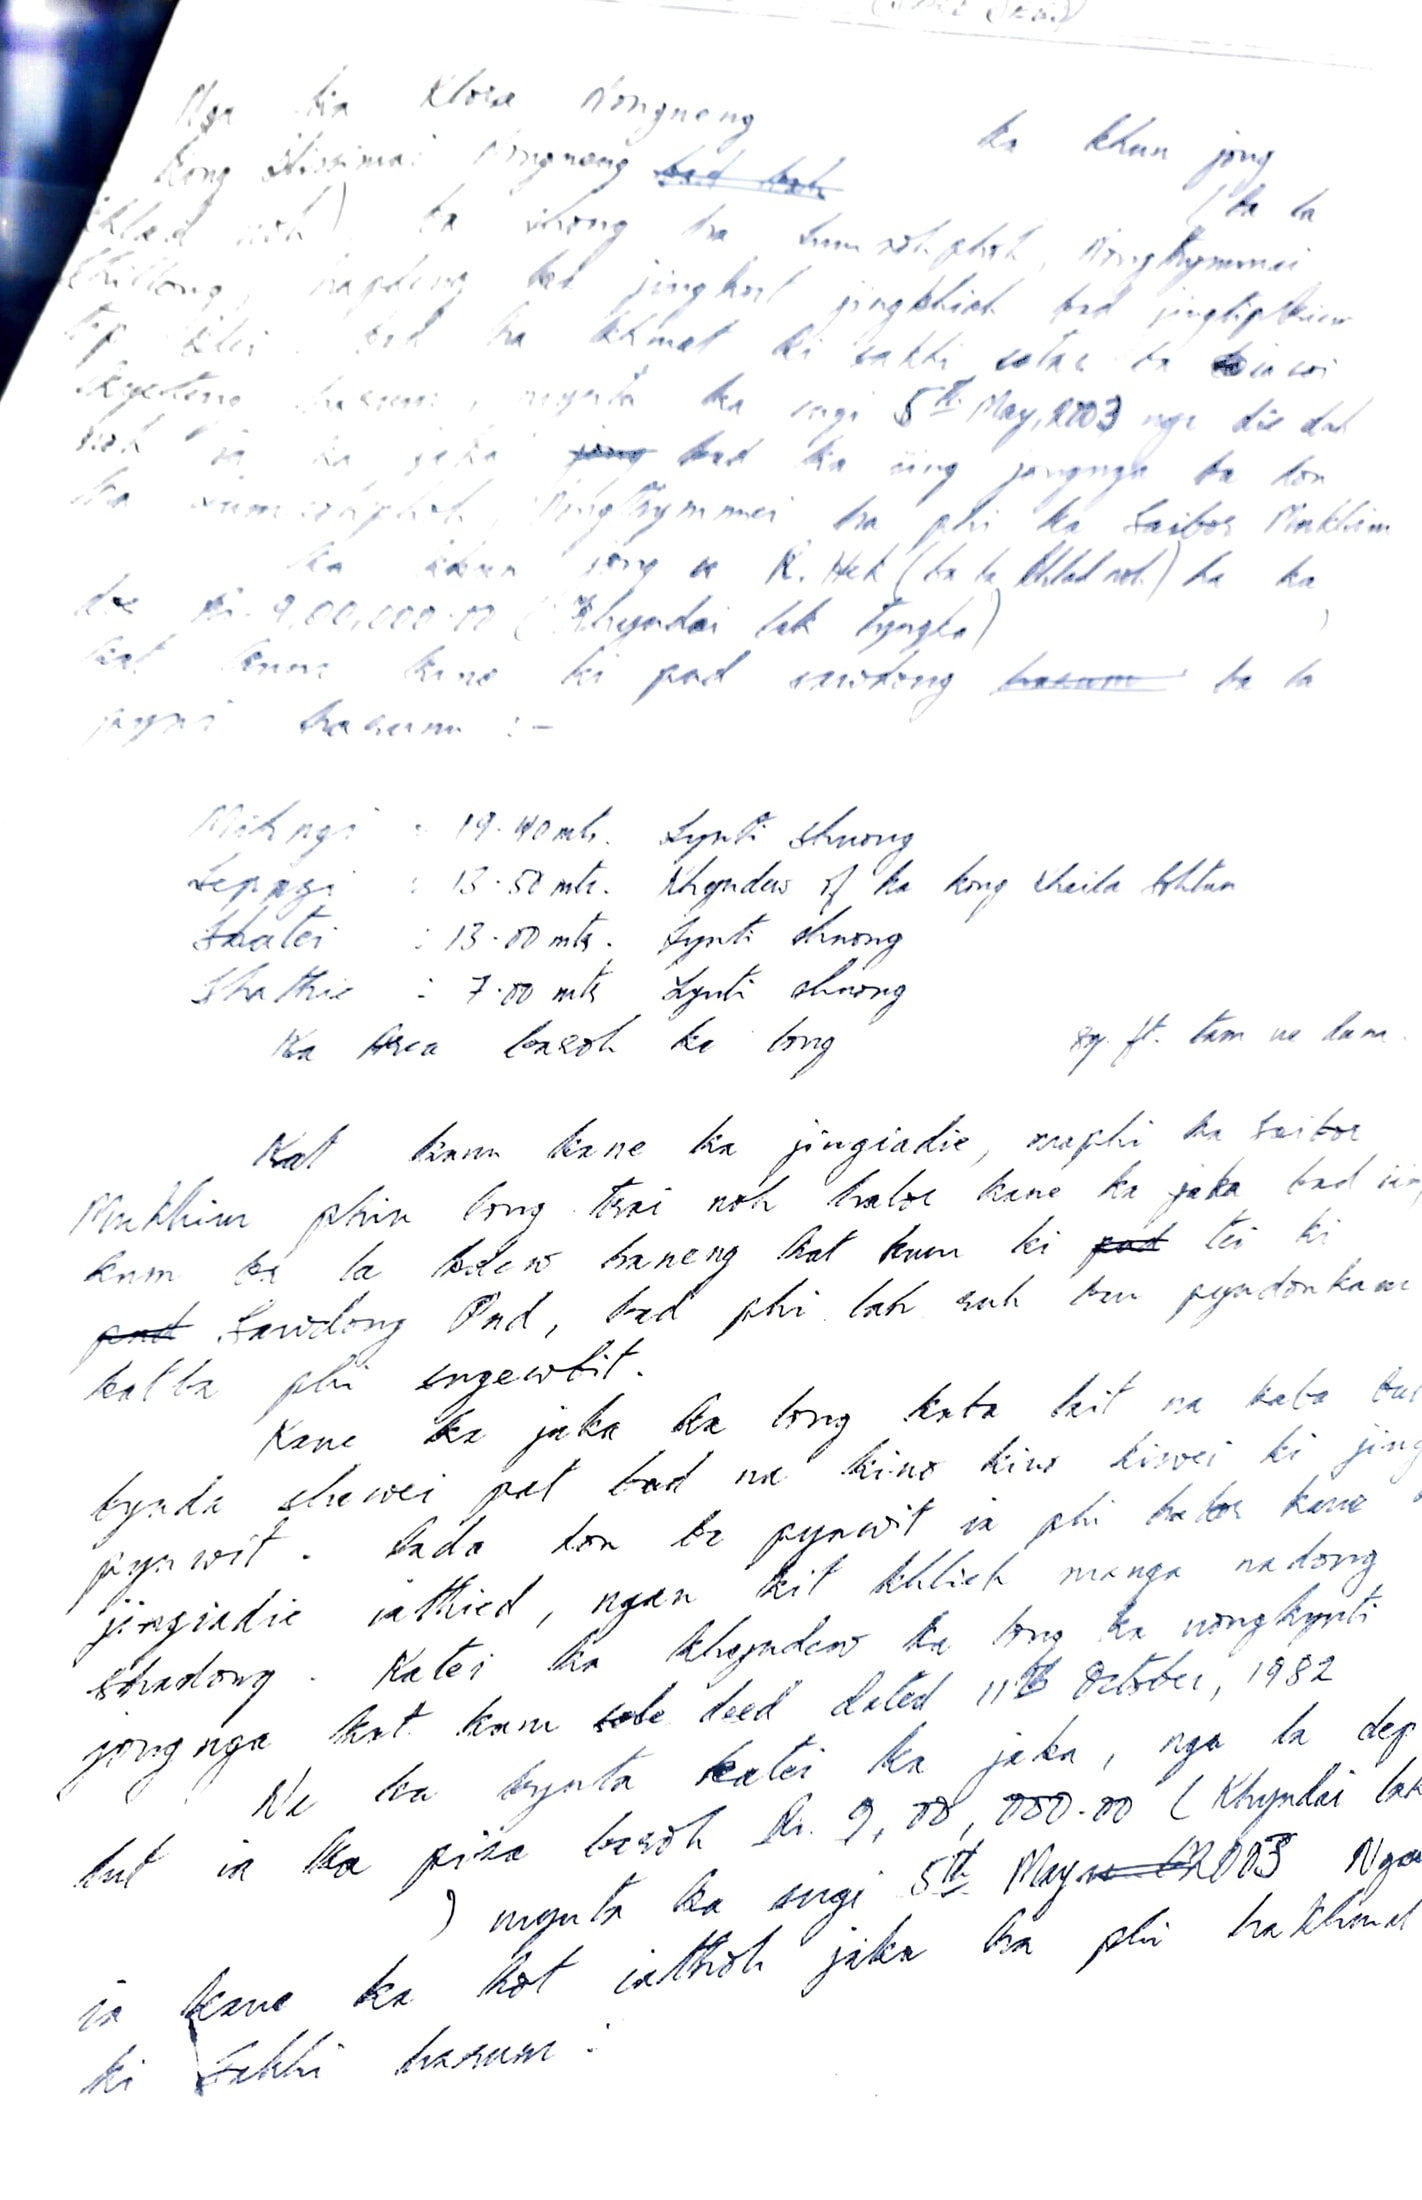 (Sale Deed)
Nga ka Klosa Nongneng ka khun jong
kong Shisimai Nongneng bad bah (ba la
khlad noh) ba shong ha Lumsohphoh, Nongthymmai
Shillong, hapdeng ka jingkort jingkhiah bad jingtipbriew
tip blei bad ha khmat ki sakhi
harum, mynta ka sngi 5th May, 2003 nga die dut
noh ia ka jaka jong bad ka iing jongnga ba don
ha Lumsohphoh, Nongthymmei ha phi ka Saibor Mukhim
ka khun jong u R. Hek (ba la khlad noh) ha ka
dor Rs. 9,00,000.00 (Khyndai lak tyngka)
kat kum kine ki pud sawdong harum ba la
pyni harum :-
Mihngi : 19.40 mts. Lynti shnong
Sepngi : 13.50 mts. Khyndew of ka kong Shaila Sohtun
Shatei : 13.00 mts. Lynti shnong
Shathie : 7.00 mts Lynti shnong
Ka Area baroh ka long sq. ft. tam ne duna.
Kat kum kane ka jingiadie, maphi ka Saibor
Mukhim phin long trai noh halor kane ka jaka bad iing
kum ba la kdew haneng kat kum ki pud tei ki
pud Sawdong Pud, bad phi lah ruh ban pyndonkam
katba phi sngewbit.
Kane ka jaka ka long kaba lait na kaba
bynda shawei pat bad na kino kino kiwei ki jing
pynwit. Lada don ba pynwit ia phi halor kane
jingiadie iathied, ngan kit khlieh manga nadong
shadong. Katei ka khyndew ka long ka nongkynti
jongnga kat kum sale deed dated 11th October, 1982
Na ka bynta katei ka jaka, nga la dep
kut ia ka pisa baroh Rs. 9,00,000.00 (Khyndai lak
) mynta ka sngi 5th May 2003 Nga
ia kane ka kot iathoh jaka ha phi hakhmat
ki Sakhi harum :